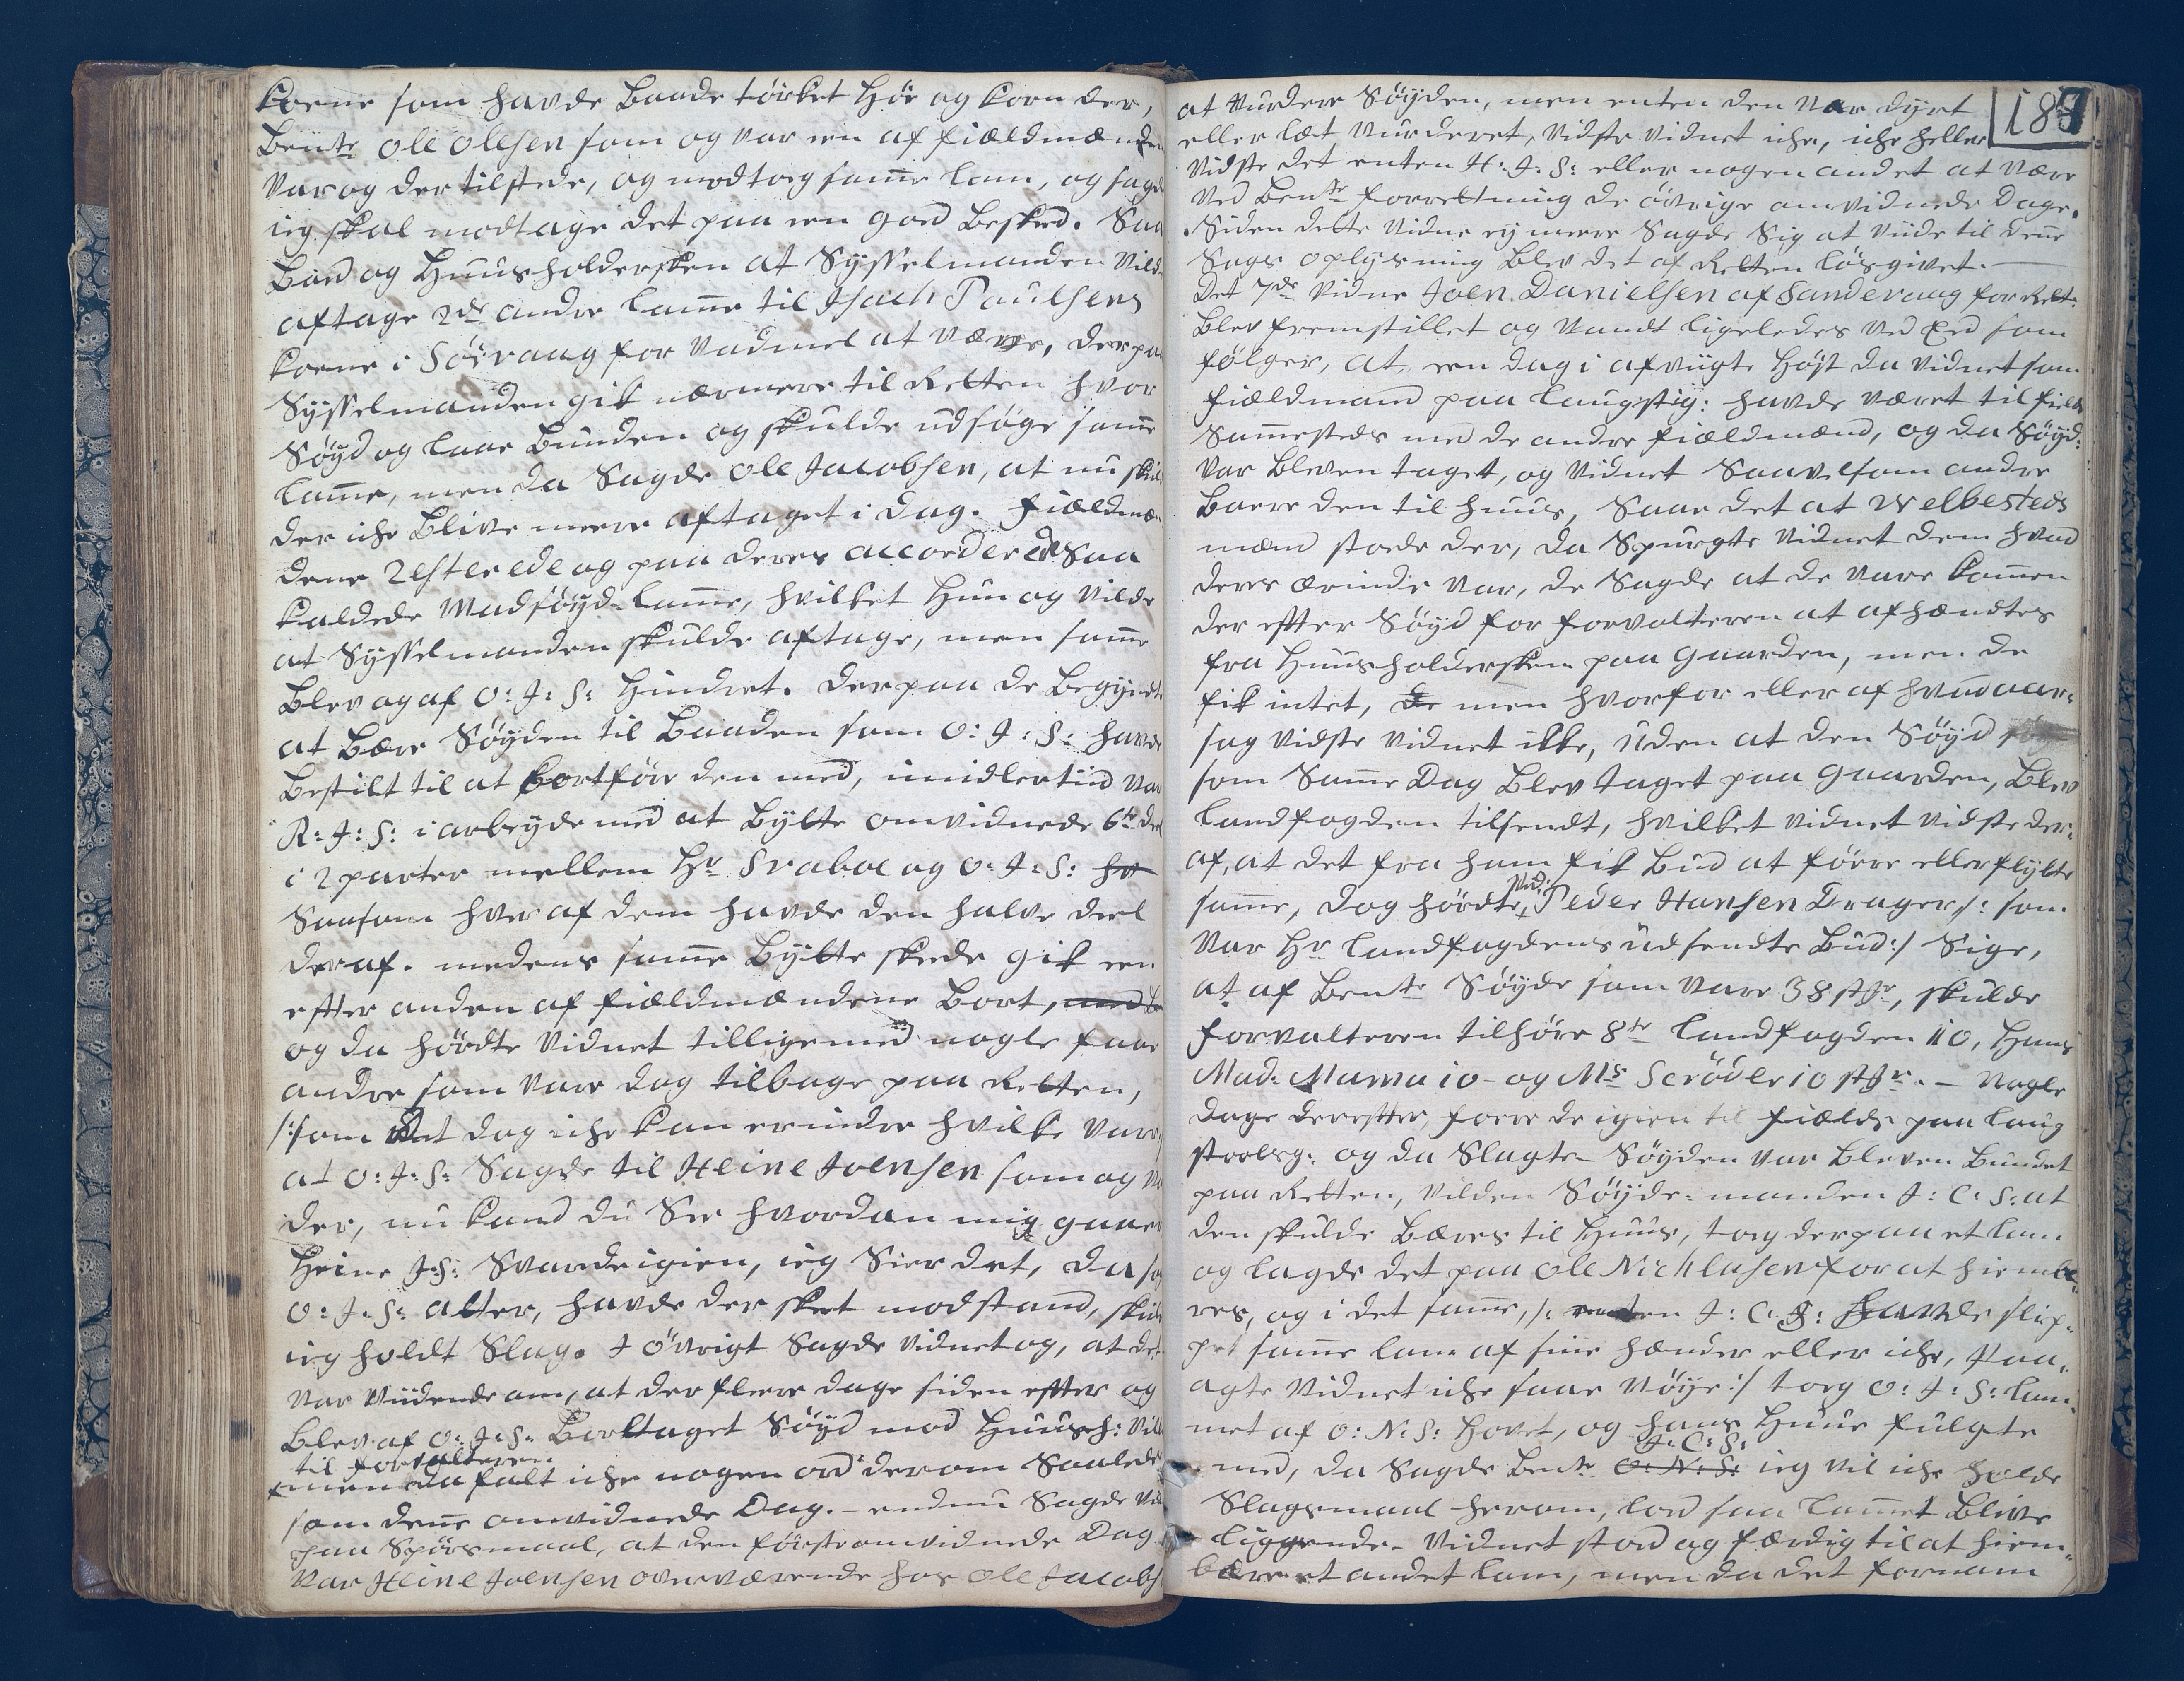 Koene som havde baade tørket Høe og Korn der,
bem.te Ole Olesen som og var een af Fieldmænden
var og der tilstede, og modtog samme Lam, og sagde
ieg skal modtage det paa een goed Besked. Saa
bad og Huusholdersken at Sysselmanden vilde
aftage 2de andre Lamme til Isach Paulsens
Koene i Sørvaag for Vadmel at væve, derpaa
Sysselmanden gik nærmere til Retten hvor
Søyd og Laae bunden og skulde udsøge samme
Lamme, men da sagde Ole Jacobsen, at nu skul
der iche blive meere aftaget i Dag. Fieldmæn
dene æsterede og paa deres accorderede saa
kaldede Madsøyd-Lamme, hvilket Hun og vilde
at Sysselmanden skulde aftage, men samme
blev og af O: J: S: hindret. derpaa de begyndte
at bære Søyden til Baaden som O: J: S: havde
bestilt til at bortføre den med, imidlertiid var
R: J: S: i arbeyde med at bytte omvidnede 6te deel
i 2 parter mellem Hr Svaboe og O: J: S: hv
saasom hver af dem havde den halve deel
deraf. medens samme Bytte skede gik een
efter anden af Fieldmændene bort,
og da hørdte Vidnet tilligemed nogle faae
andre som vare dog tilbage paa Retten,
/: som det dog iche kan erindre hvilke vare
at O: J: S: sagde til Heine Joensen som og va
der, nu kand du see hvordan mig gaaer
Heine J:S: svarede igien, ieg seer det, da sa
O: J: S: atter, havde der skeet modstand, skul
ieg holdt Slag. I øvrigt sagde Vidnet og, at det
var vidende om, at der fleere dage siden efter og
blev af O: J: S: borttaget Søyd mod Huush: Vill
til Forvalteren
men da falt iche nogen ord derom saaledes
som denne omvidnede Dag. – endnu sagde Vid
paa Spørsmaal, at den første omvidnede Dag
var Heine Joensen overværende hos Ole Jacobs
187
at vurdere Søyden, men enten den var dyrt
eller læt vurderet, vidste vidnet iche, iche heller
vidste det enten H: J: S: eller nogen andet at være
ved bem.te Forretning de øvrige omvidnede Dage.
Siden dette Vidne ey meere sagde sig at viide til denne
Sags oplysning blev det af Retten løsgivet. –
Det 7de Vidne Joen Danielsen af Sandevaag for Rett:
blev fremstillet og vandt ligeledes ved Eed som
følger, at een dag i afvigte Høst da Vidnet som
Fieldmand paa Laugstig: havde været til Fields
sammesteds med de andre Fieldmænd, og da Søyd:
var bleven taget, og Vidnet saavelsom andre
baare den til Huus, saae det at Welbesteds
mænd stode der, da spurgte Vidnet dem hvad
deres ærinde var, de sagde at de vare kommen
der efter Søyd for Forvalteren at afhændtes
fra Huusholdersken paa Gaarden, men de
fik intet, de men hvorfor eller af hvad aar-
sag vidste Vidnet ikke, uden at den Søyd
som samme Dag blev taget paa Gaarden, blev
Landfogden tilsendt, hvilket Vidnet vidste der-
af, at det fra ham fik bud at føre eller flytte
samme, dog hørdte Vid: Peder Hansen Drager /: som
var Hr Landfogdens udsendte Bud :/ sige,
at af bem.te Søyde som vare 38 stkr, skulde
Forvalteren tilhøre 8te Landfogden 10, hans
Mad: Mama 10 – og Mr Scrøder 10 stkr. – Nogle
dage derefter, foere de igien til Fields paa Laug
stoelsg: og da Slagte-Søyden var bleven bundet
paa Retten, vilden Søyde-manden J: C: S: at
den skulde bæres til Huus, tog derpaa et Lam
og lagde det paa Ole Nichlasen for at hiembæ-
res, og i det samme, /: enten J: C: S: havde slip-
pet samme Lam af sine hænder eller iche, paa-
agte Vidnet iche saae nøye :/ tog O: J: S: Lam-
met af O: N: S: Hovet, og hans Huue fulgte
J: C: S:
med, da sagde bem.te O: N: S: ieg vil iche holde
Slagsmaal herom, lod saa Lammet blive
liggende. Vidnet stod og færdig til at hiem-
bære et andet Lam, men da det fornam